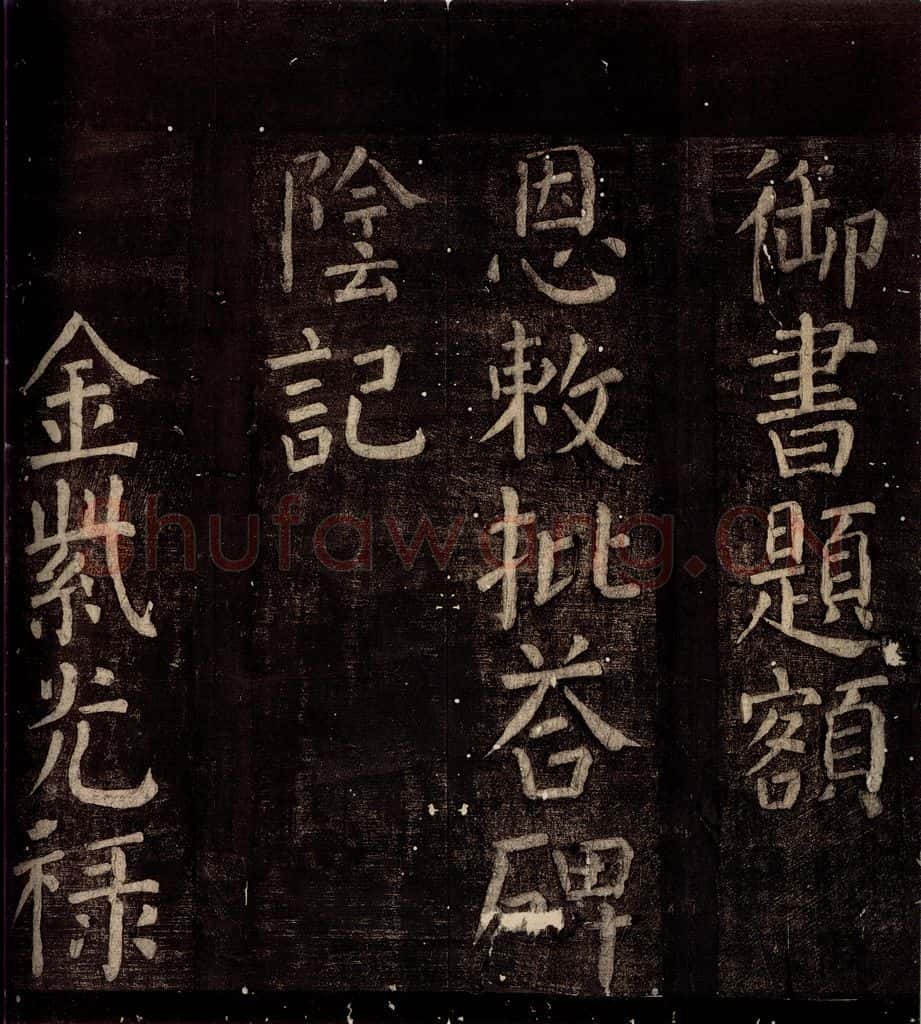 御書題額
恩敕批荅碑
陰記
金紫光禄
Shufawang.CN